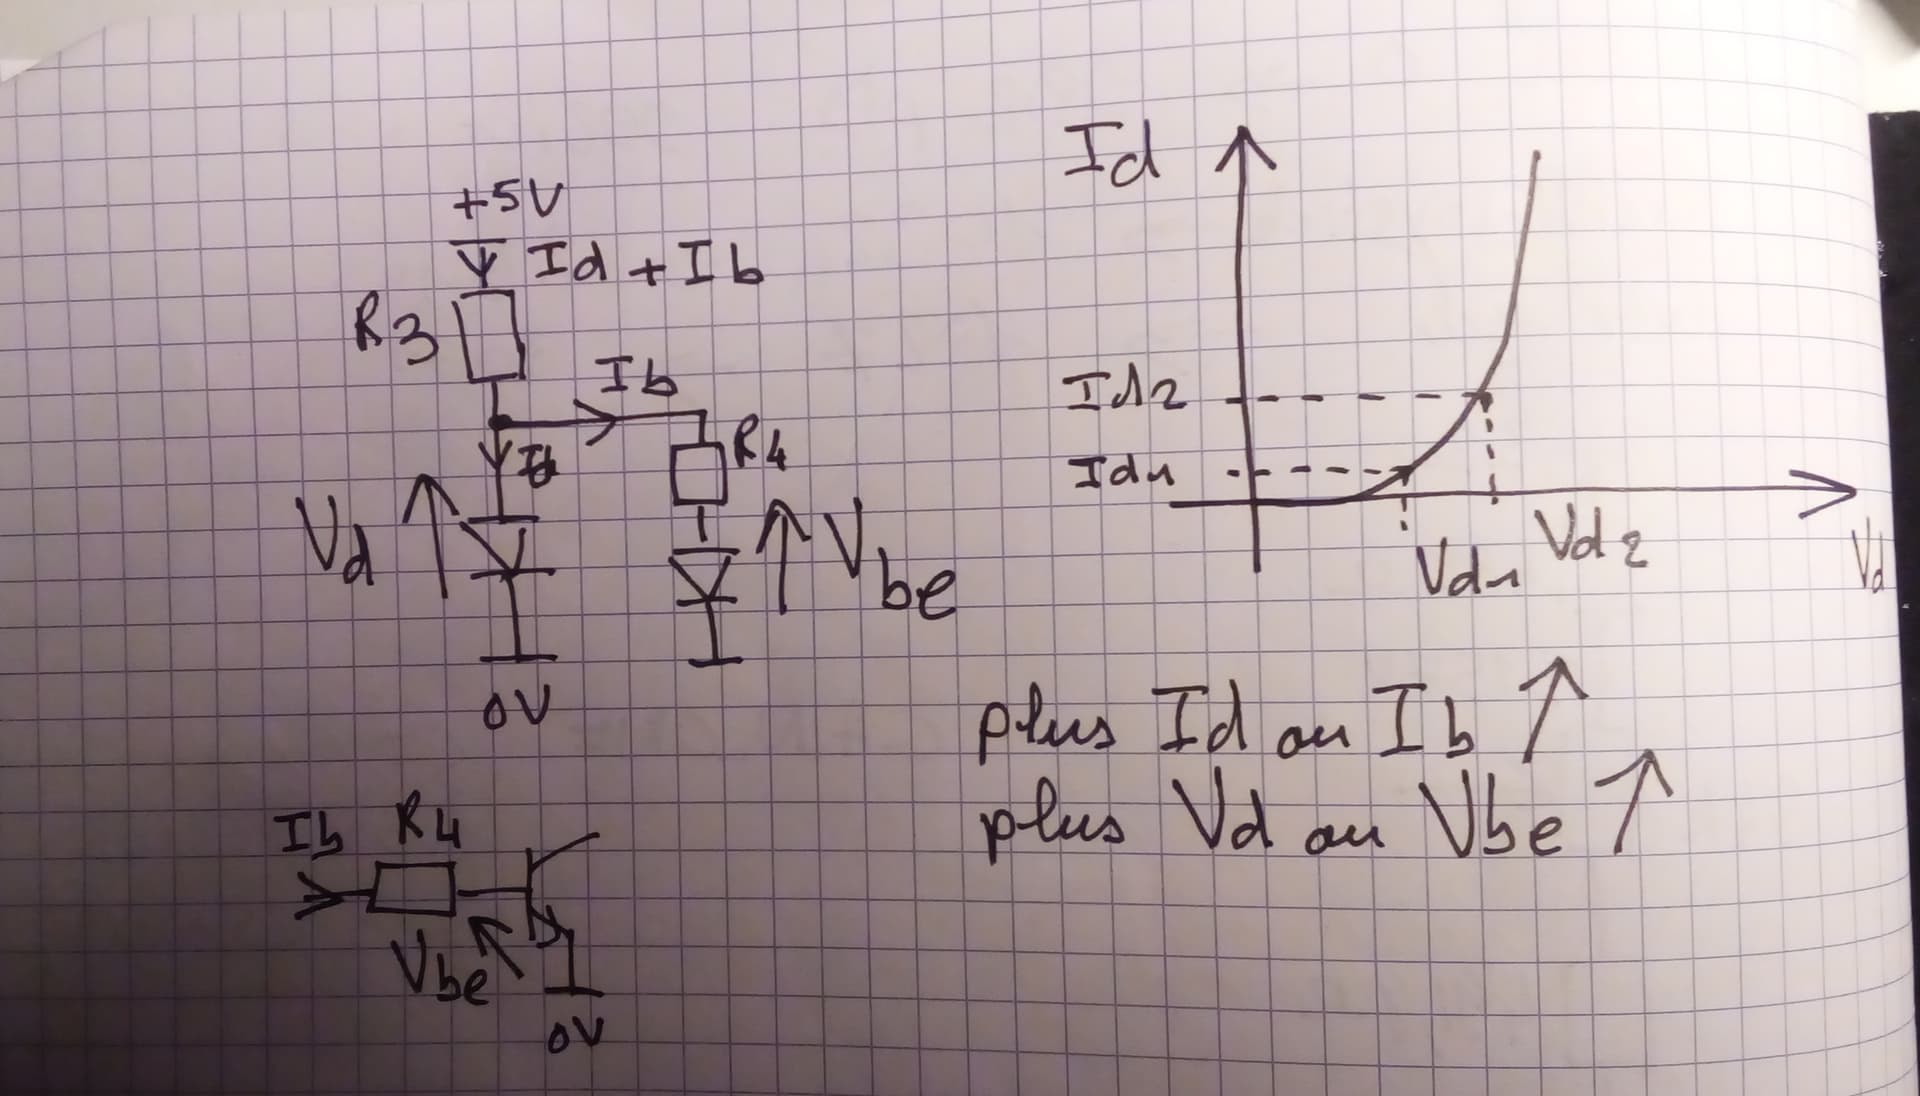 +5V
Id + Ib
R3
Ib
Id
R4
Vd
Vbe
0V
Ib R4
Vbe
0V
Id
Id2
Id1
Vd1 Vd2 Vd
plus Id ou Ib ↑
plus Vd ou Vbe ↑